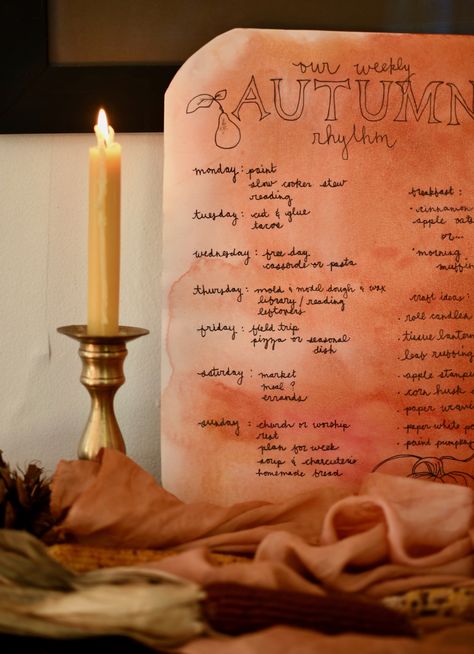 our weekly
AUTUMN
rhythm
monday: paint
slow cooker stew
reading
tuesday: cut & glue
tacos
wednesday: free day
casserole or pasta
thursday: mold & model dough & wax
library/reading
leftovers
friday: field trip
pizza or seasonal
dish
saturday: market
meal?
errands
sunday: church or worship
rest
plan for week
soup & charcuterie
homemade bread
breakfast:
• cinnamon
apple oats
or...
• morning
muffins
craft ideas
• roll candles
• tissue lantern
• leaf rubbing
• apple stampin
• corn husk
• paper weave
• paper white po
• paint pumpkin